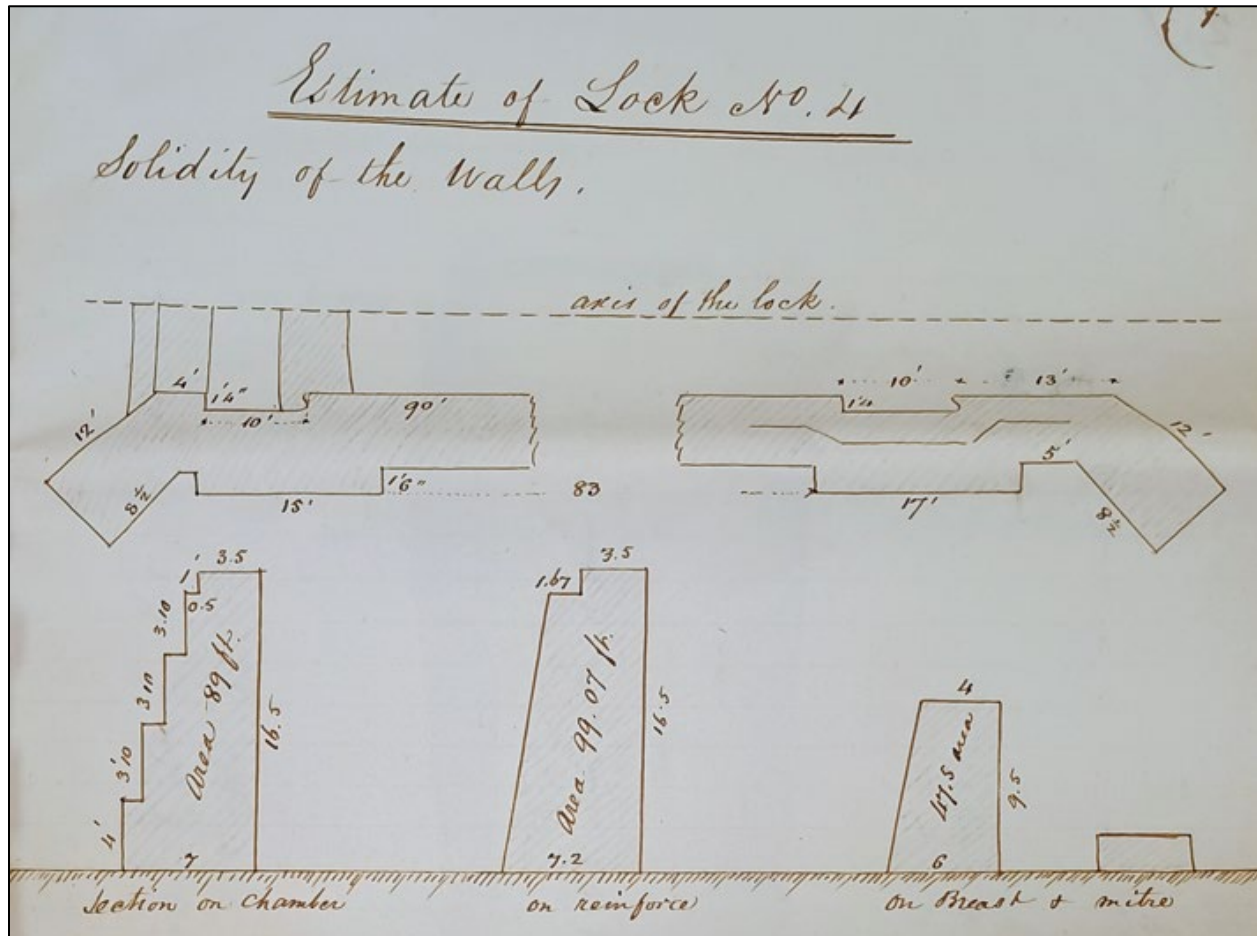 Estimate of Lock No. 4
Solidity of the Walls.
axis of the lock.
4' 1'4" 10' 90' 10' 13'
12' 1'4 12'
8 1/2 15' 1'6" 83 17' 5' 8 1/2
1' 3.5 1.67 3.5
0.5
3.10
3 10
3'10
4'
Area 89 ft.
16.5
7
Area 99.07 ft.
16.5
7.2
4
47.5 area
9.5
6
Section on Chamber on reinforce on Breast & mitre